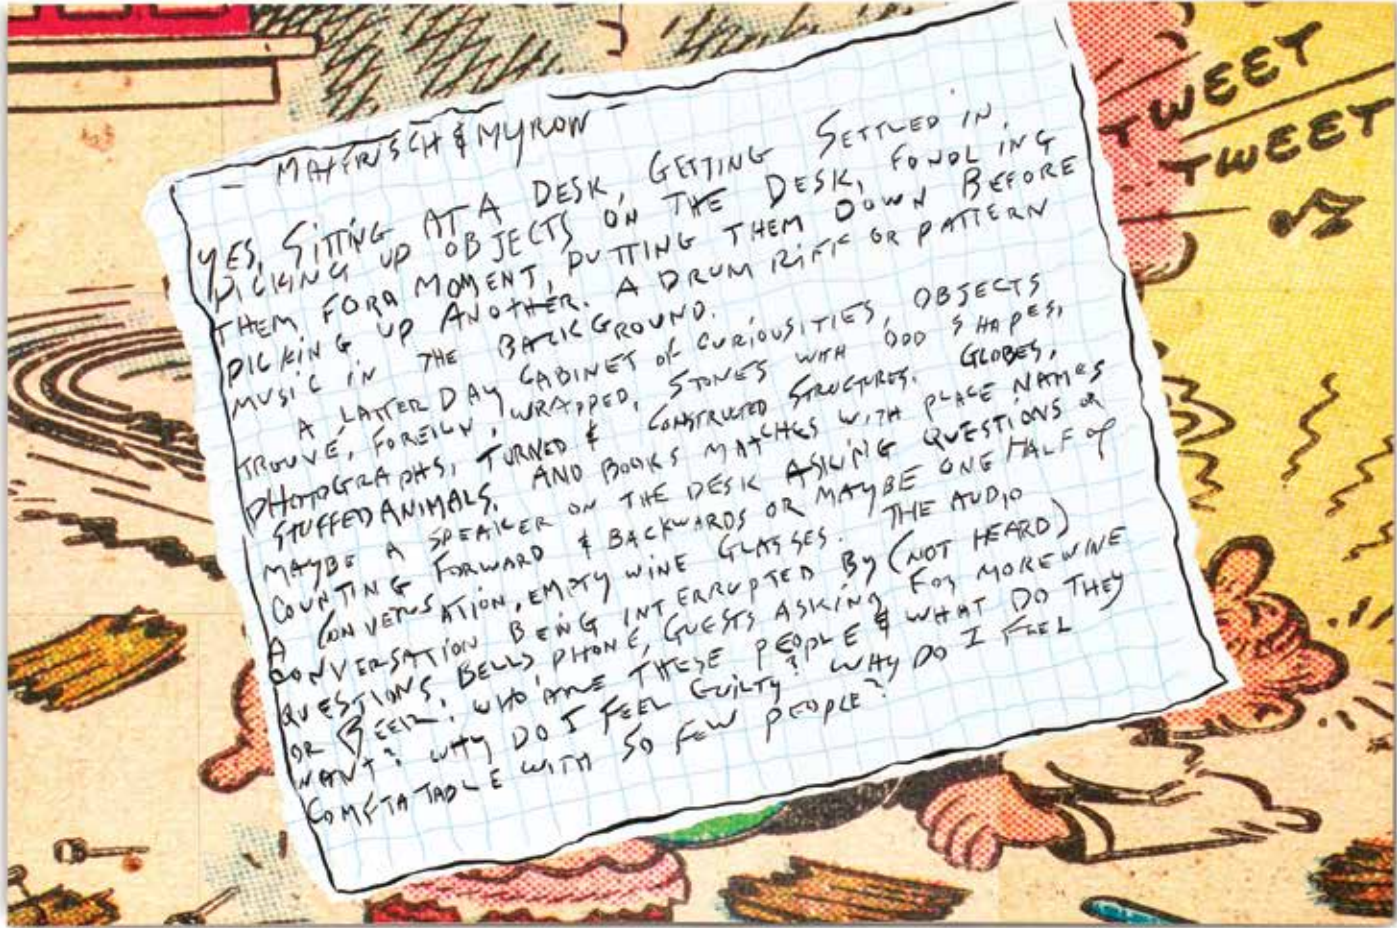 — & MYRON —
YES, SITTING AT A DESK, GETTING SETTLED IN.
PICKING UP OBJECTS ON THE DESK, FONDLING
THEM FOR A MOMENT, PUTTING THEM DOWN BEFORE
PICKING UP ANOTHER. A DRUM RIFF OR PATTERN
MUSIC IN THE BACKGROUND.
A LATTER DAY CABINET OF CURIOUSITIES, OBJECTS
TROUVÉ, FOREIGN, WRAPPED, STONES WITH ODD SHAPES,
PHOTOGRAPHS, TURNED & CONSTRUCTED STRUCTURES. GLOBES,
STUFFED ANIMALS. AND BOOKS MATCHES WITH PLACE NAMES
MAYBE A SPEAKER ON THE DESK ASKING QUESTIONS OR
COUNTING FORWARD & BACKWARDS OR MAYBE ONE HALF OF
A CONVERSATION, EMPTY WINE GLASSES. THE AUDIO
CONVERSATION BEING INTERRUPTED BY (NOT HEARD)
QUESTIONS, BELLS, PHONE, GUESTS ASKING FOR MORE WINE
OR BEER. WHO ARE THESE PEOPLE & WHAT DO THEY
WANT? WHY DO I FEEL GUILTY? WHY DO I FEEL
COMFTATABLE WITH SO FEW PEOPLE?
TWEET
TWEET